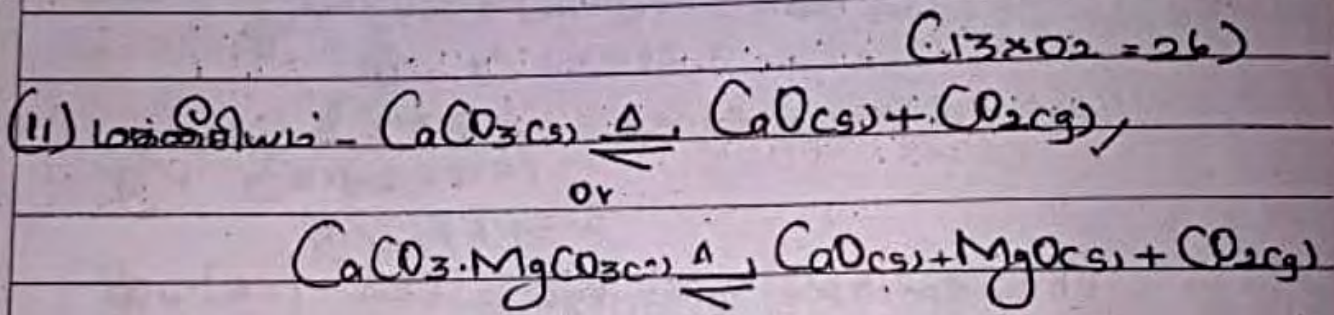 (13×02 = 26)
(11) - CaCO₃(s) ⇌ Δ CaO(s) + CO₂(g)
or
CaCO₃.MgCO₃(s) ⇌ Δ CaO(s) + MgO(s) + CO₂(g)